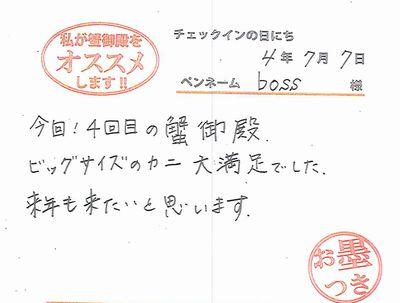 私が蟹御殿を
オススメ
します!!
チェックインの日にち
4年7月7日
ペンネーム boss 様
今回!4回目の蟹御殿.
ビッグサイズのカニ大満足でした.
来年も来たいと思います.
お墨
つき